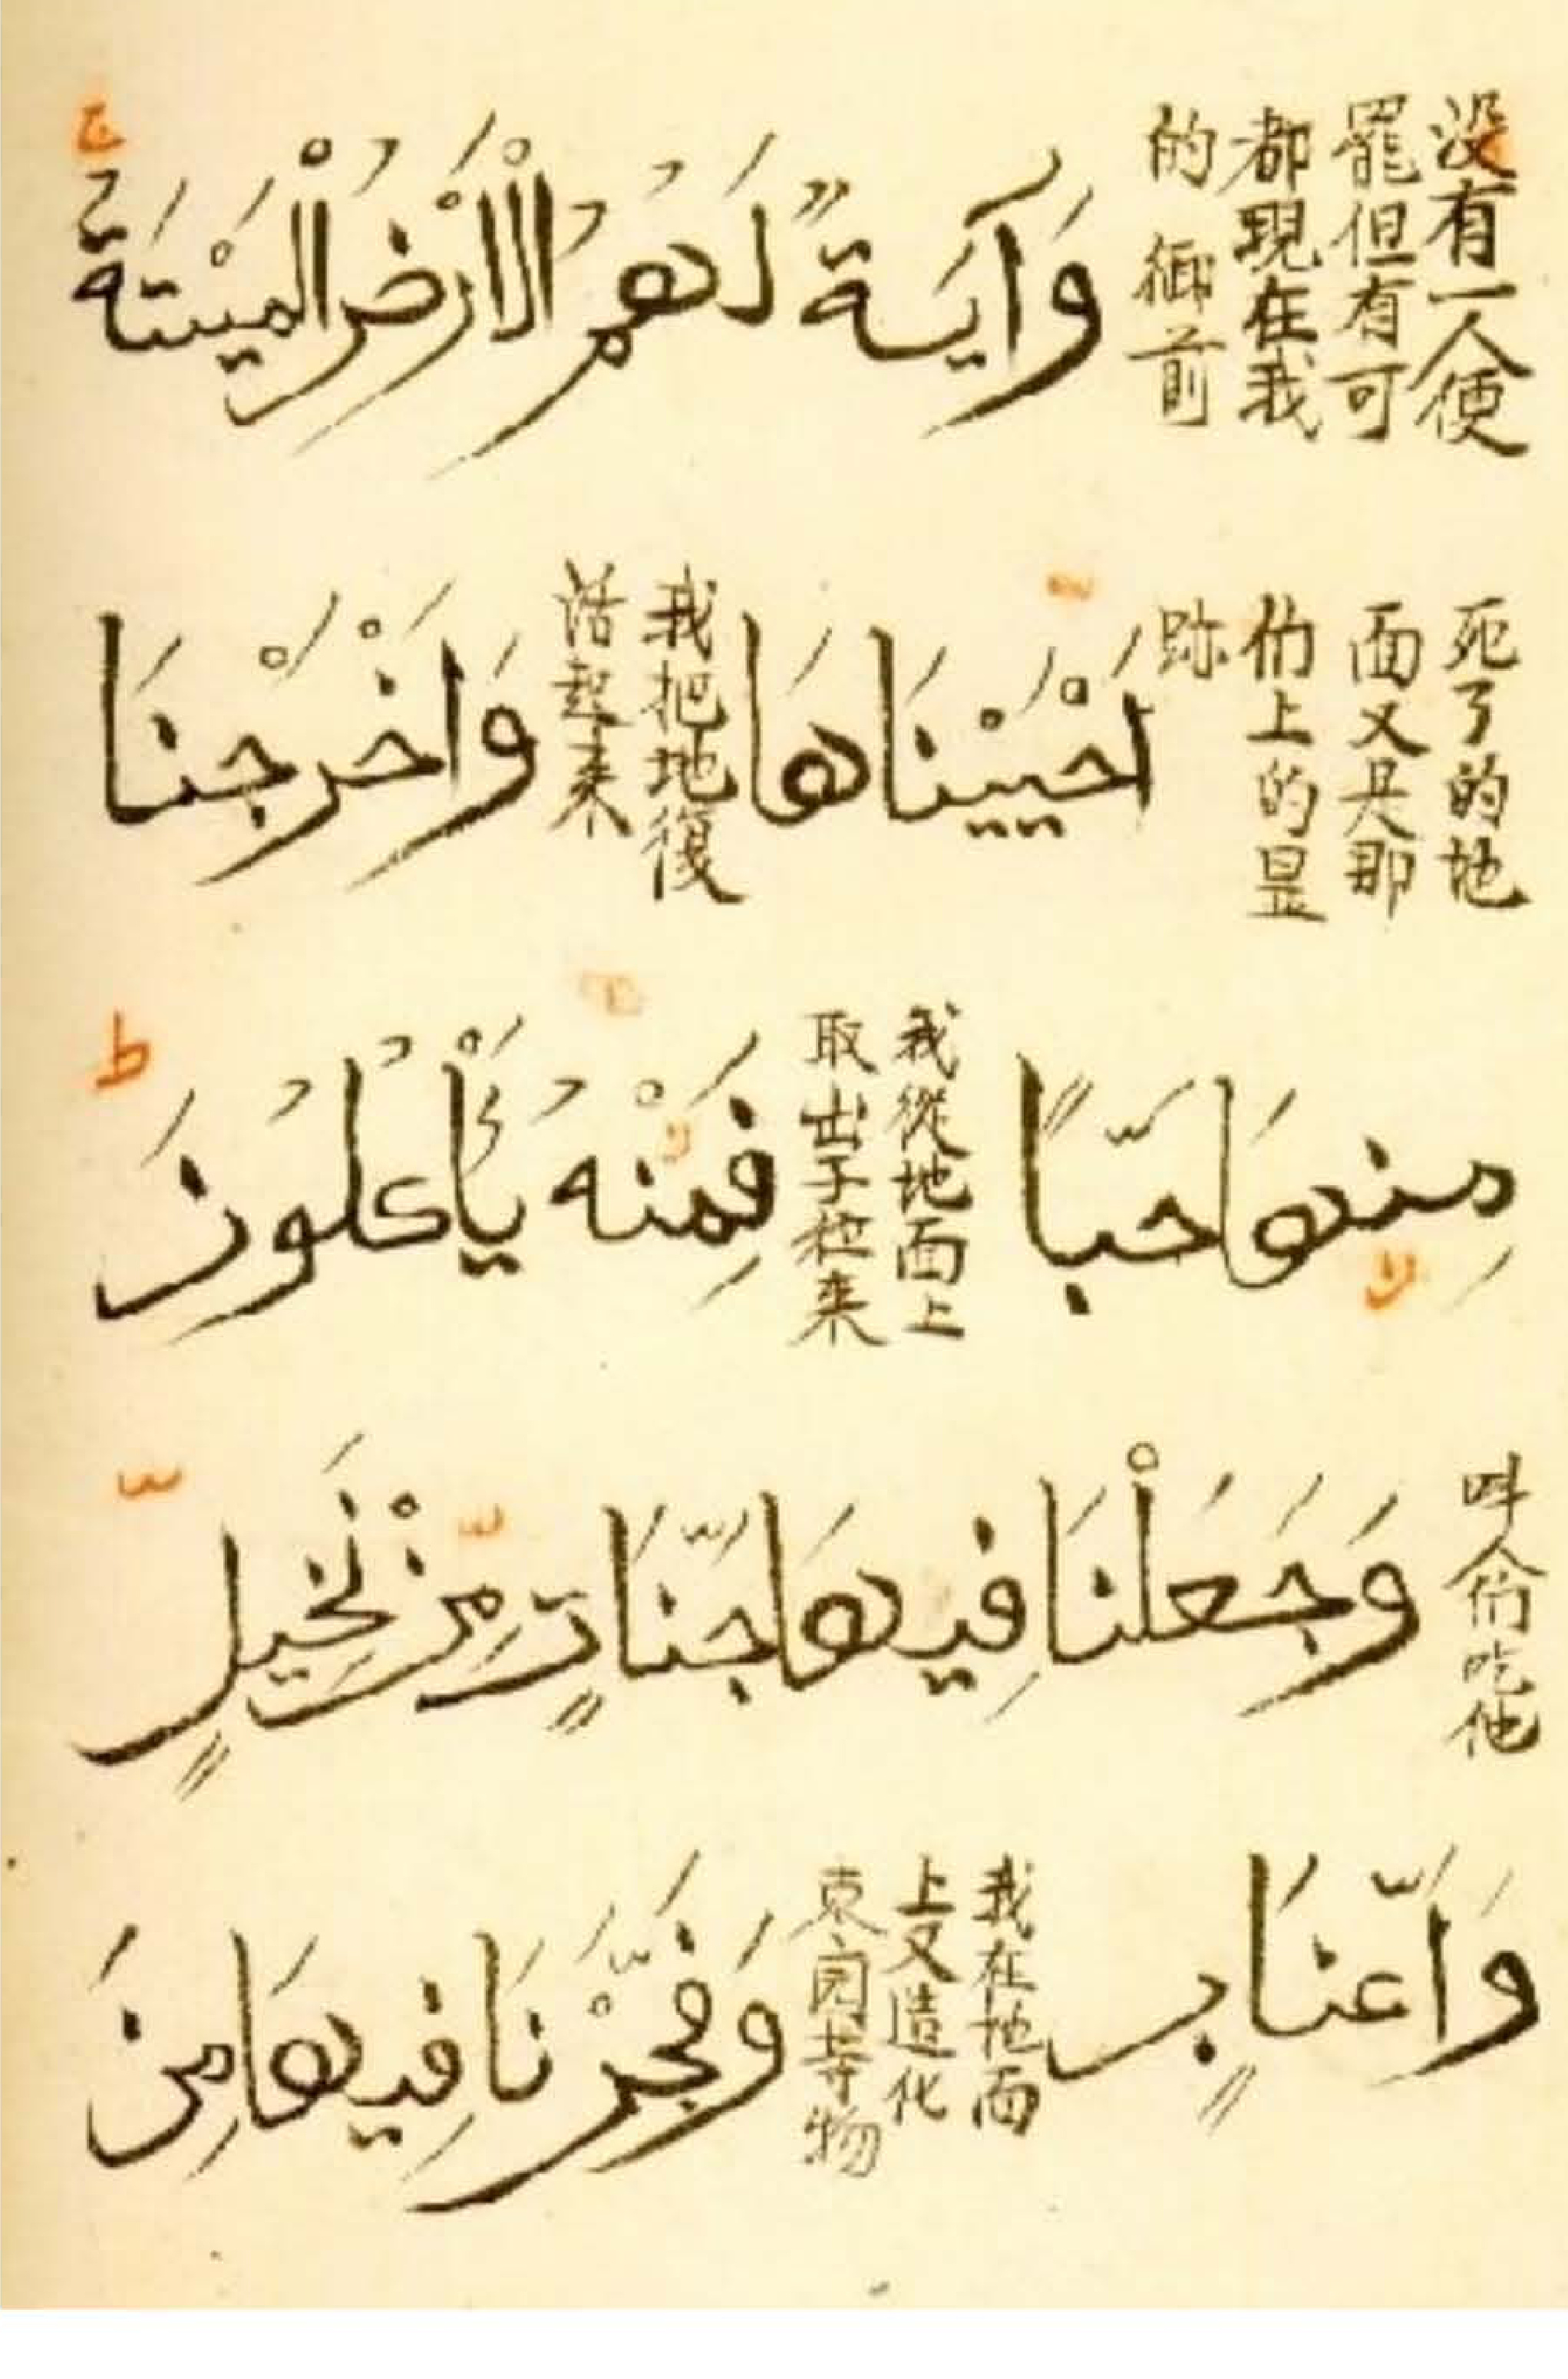 没有一人便罷但有可都現在我的御前 وَآيَةٌ لَهُمُ الْاَرْضُ الْمَيْتَةُ ج
死了的地面又是那们上的显跡 اَحْيَيْنَاهَا 我把地復活起来 وَاَخْرَجْنَا
مِنهَا حَبًّا 我從地面上取出子粒来 فَمِنْهُ يَأْكُلُونَ ط
叫人們吃他 وَجَعَلْنَا فِيهَا جَنَّاتٍ مِنْ نَخِيلٍ
وَاَعنَابٍ 我在地面上又造化枣园等物 وَفَجَّرْنَا فِيهَا مِنَ